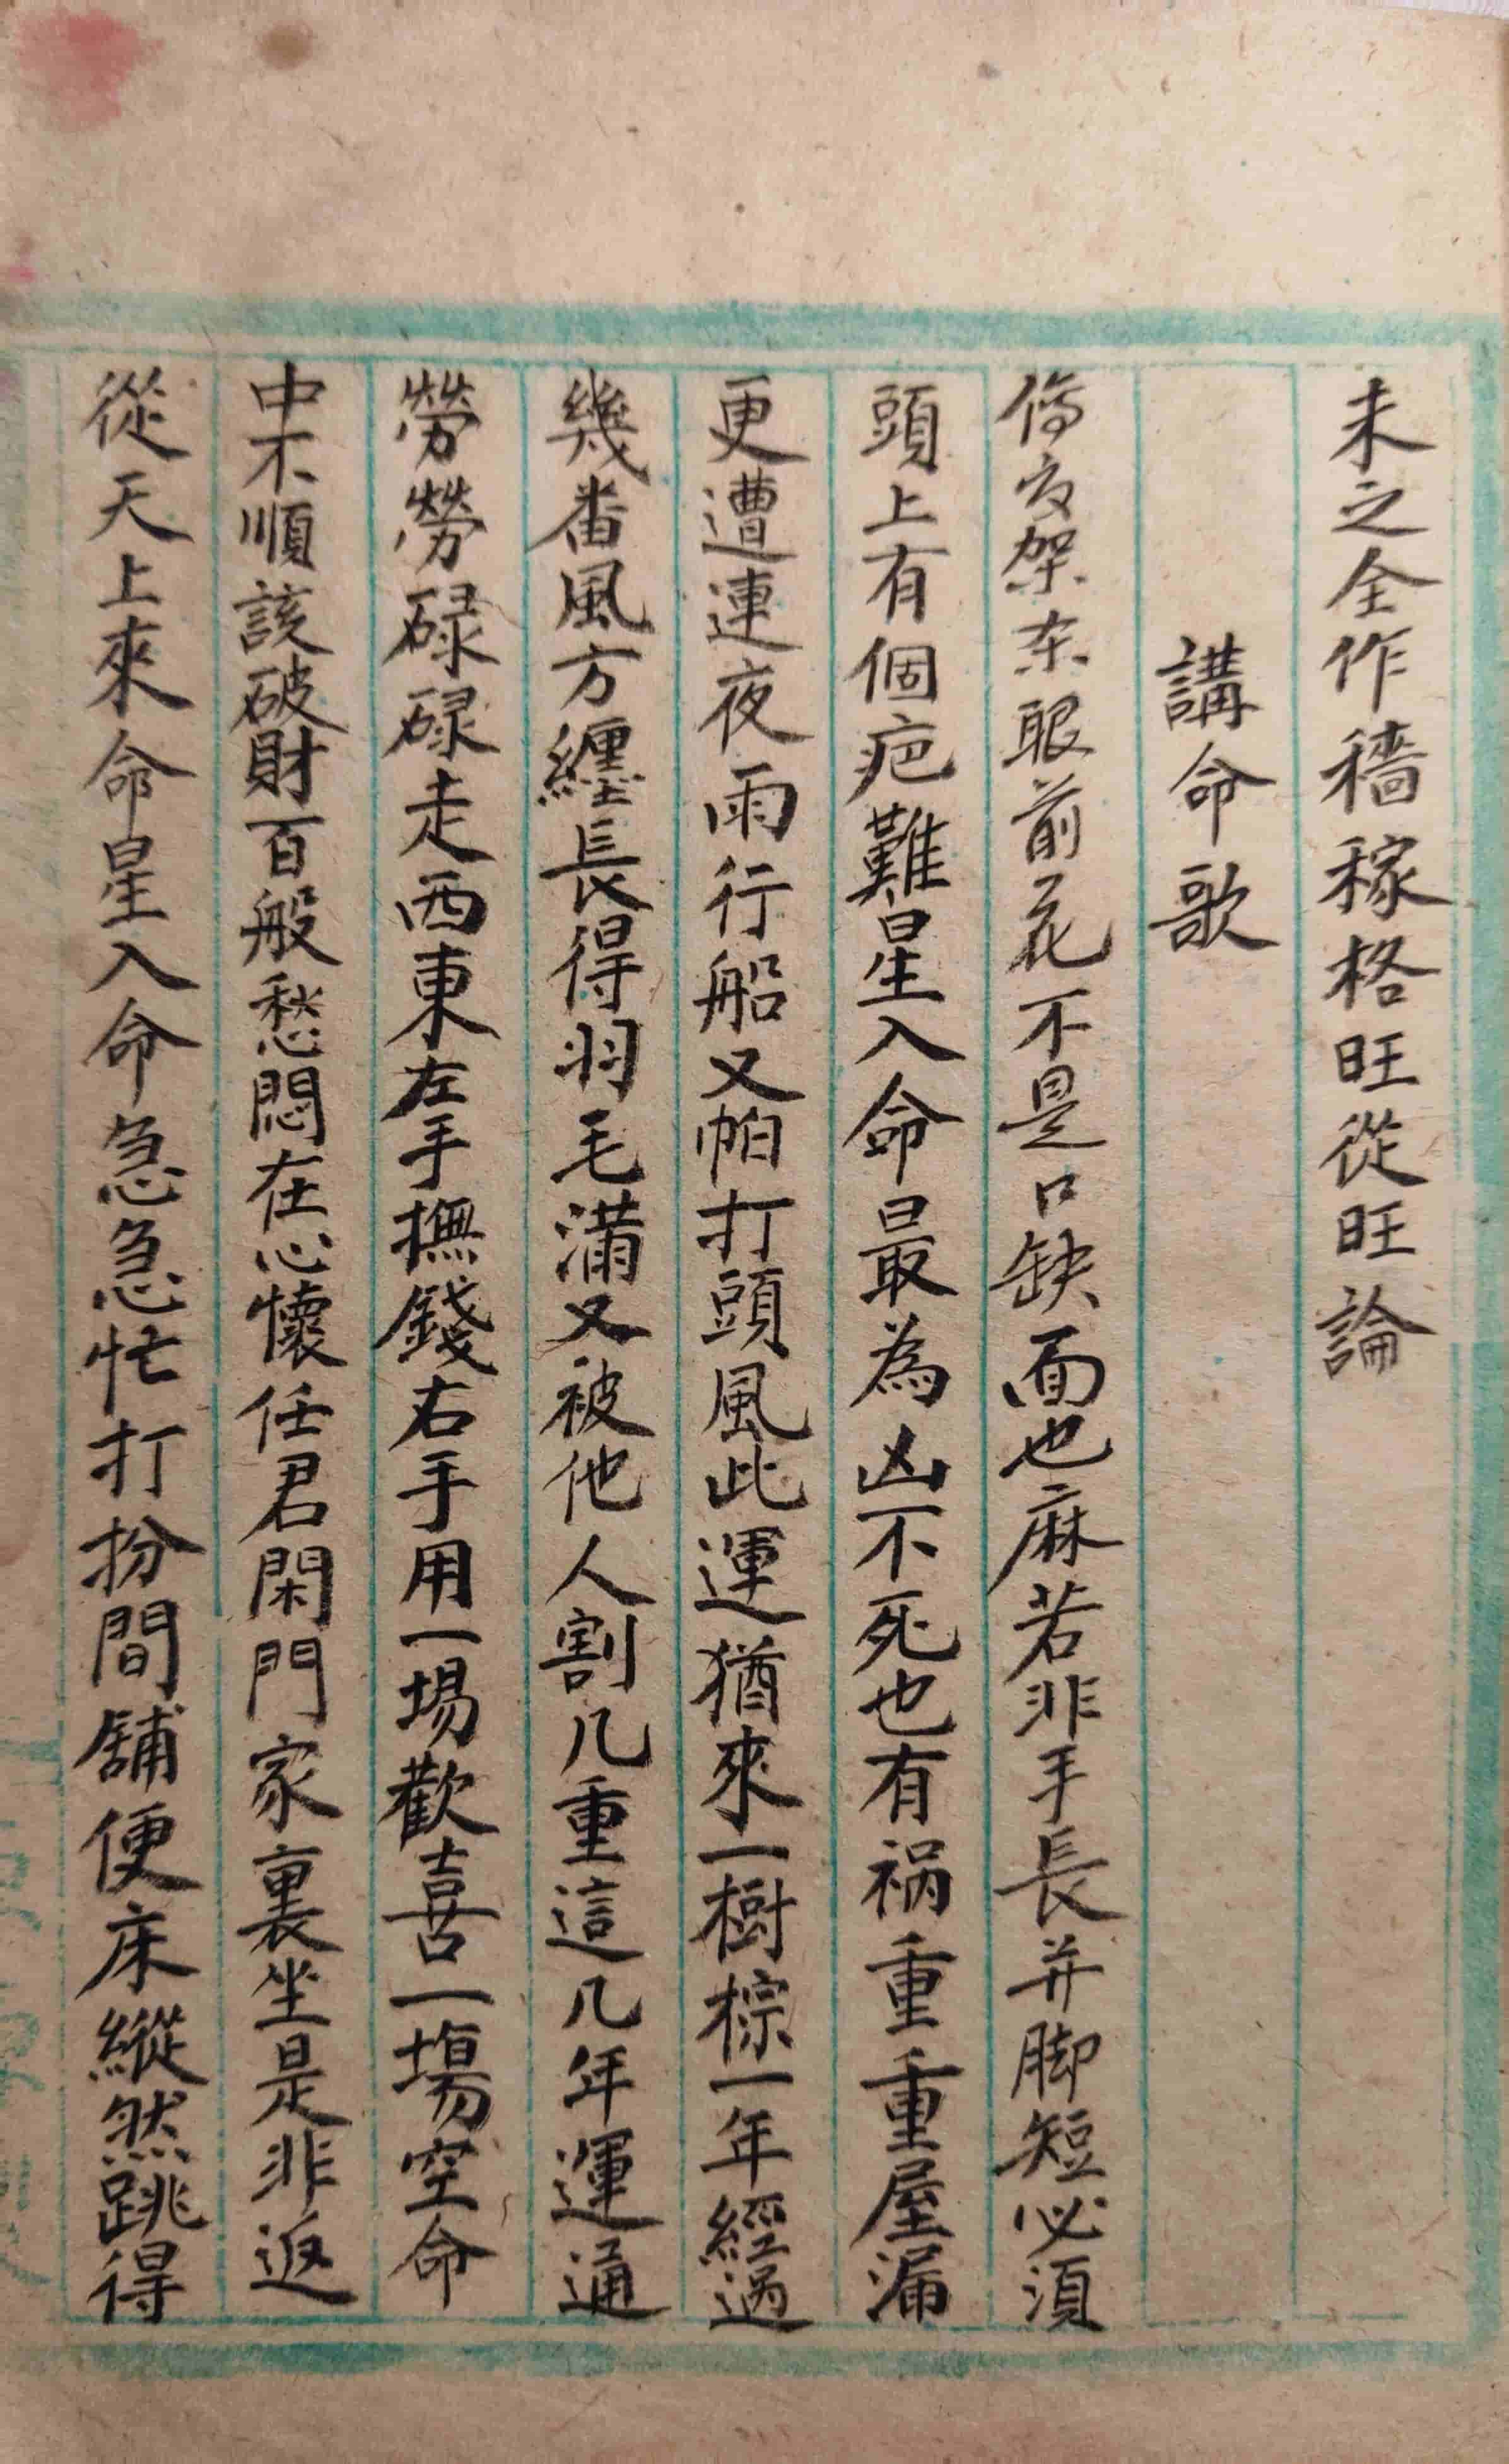 未之全作穡稼格旺從旺論
講命歌
架东眼前花不是口缺面也麻若非手長并脚短必須
頭上有個疤難星入命最為凶不死也有祸重重屋漏
更遭連夜雨行船又帕打頭風此運猶來一樹棕一年經過
幾番風方纏長得羽毛滿又被他人割几重這几年運通
勞勞碌碌走西東左手撫錢右手用一場歡喜一塲空命
中不順該破財百般愁悶在心懷任君閑門家裏坐是非返
從天上來命星入命急急忙打扮間舖便床縱然跳得